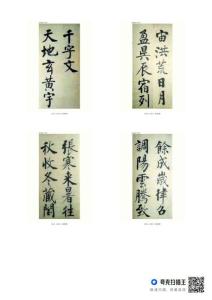 千字文
天地玄黄宇
宙洪荒日月
盈昃辰宿列
張寒来暑往
秋收冬藏閏
餘成歲律召
調陽雲騰致
夸克扫描王
极速扫描，就是高效